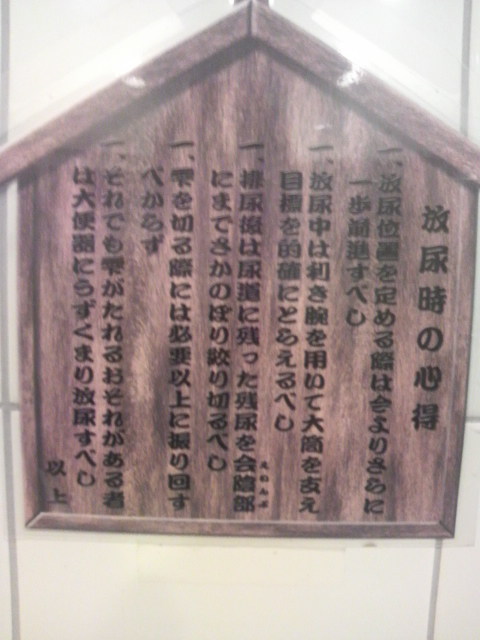 放尿時の心得
一、放尿位置を定める際は今よりさらに
一歩前進すべし
一、放尿中は利き腕を用いて大筒を支え
目標を的確にとらえるべし
一、排尿後は尿道に残った残尿を会陰部
えいんぶ
にまでさかのぼり絞り切るべし
一、雫を切る際には必要以上に振り回す
べからず
一、それでも雫がたれるおそれがある者
は大便器にうずくまり放尿すべし
以上